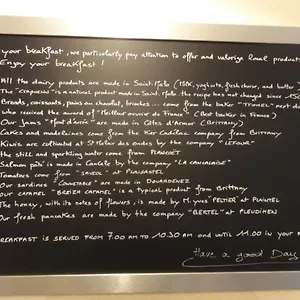 your breakfast, we particularly pay attention to offer and valorize local products
Enjoy your breakfast!
All the dairy products are made in Saint-Malo (milk, yoghurts, fresh cheese, and butter
The "Craquelins" is a natural product made in Saint-Malo, the recipe has not changed since
Breads, croissants, pains au chocolat, brioches... come from the baker next
who received the award of "Meilleur ouvrier de France" (Best backer in France)
Our Jams are made in Côtes d'Armor (Brittany)
Cakes and madeleines come from the Ker Cadélac company from Brittany
Kiwis are cultivated at St Méloir des ondes by the company "LEFOUR"
the still and sparkling water come from PLANCOËT
Salmon paté is made in Cancale by the company "LA CANCALAISE"
Tomatoes come from "SAVEOL" at PLOUGASTEL
Our sardines are made in DOUARDENEZ
Our caramel "BREIZH CARAMEL" is a typical product from Brittany
The honey, with its notes of flowers, is made by M. yves PELTIER at PLAINTEL
Our fresh pancakes are made by the company "BERTEL" at PLEUDIHEN
BREAKFAST IS SERVED FROM 7.00 AM TO 10.30 AM AND UNTIL 11.00 IN YOUR
Have a good Day